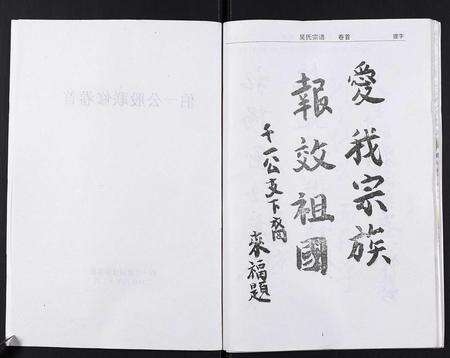 吴氏宗谱 卷首 题字
愛我宗族
報效祖國
千一公支下裔
來福題
1